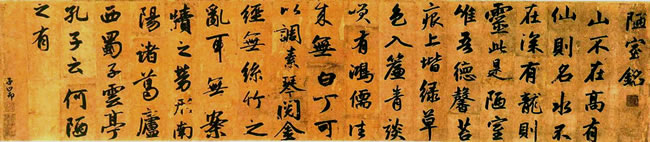 陋室銘
山不在高有
仙則名水不
在深有龍則
靈此是陋室
惟吾德馨苔
痕上堦緑草
色入簾青談
笑有鴻儒往
来無白丁可
以調素琴閲金
經無絲竹之
亂耳無案
牘之勞南
陽諸葛廬
西蜀子雲亭
孔子云何陋
之有
子昂